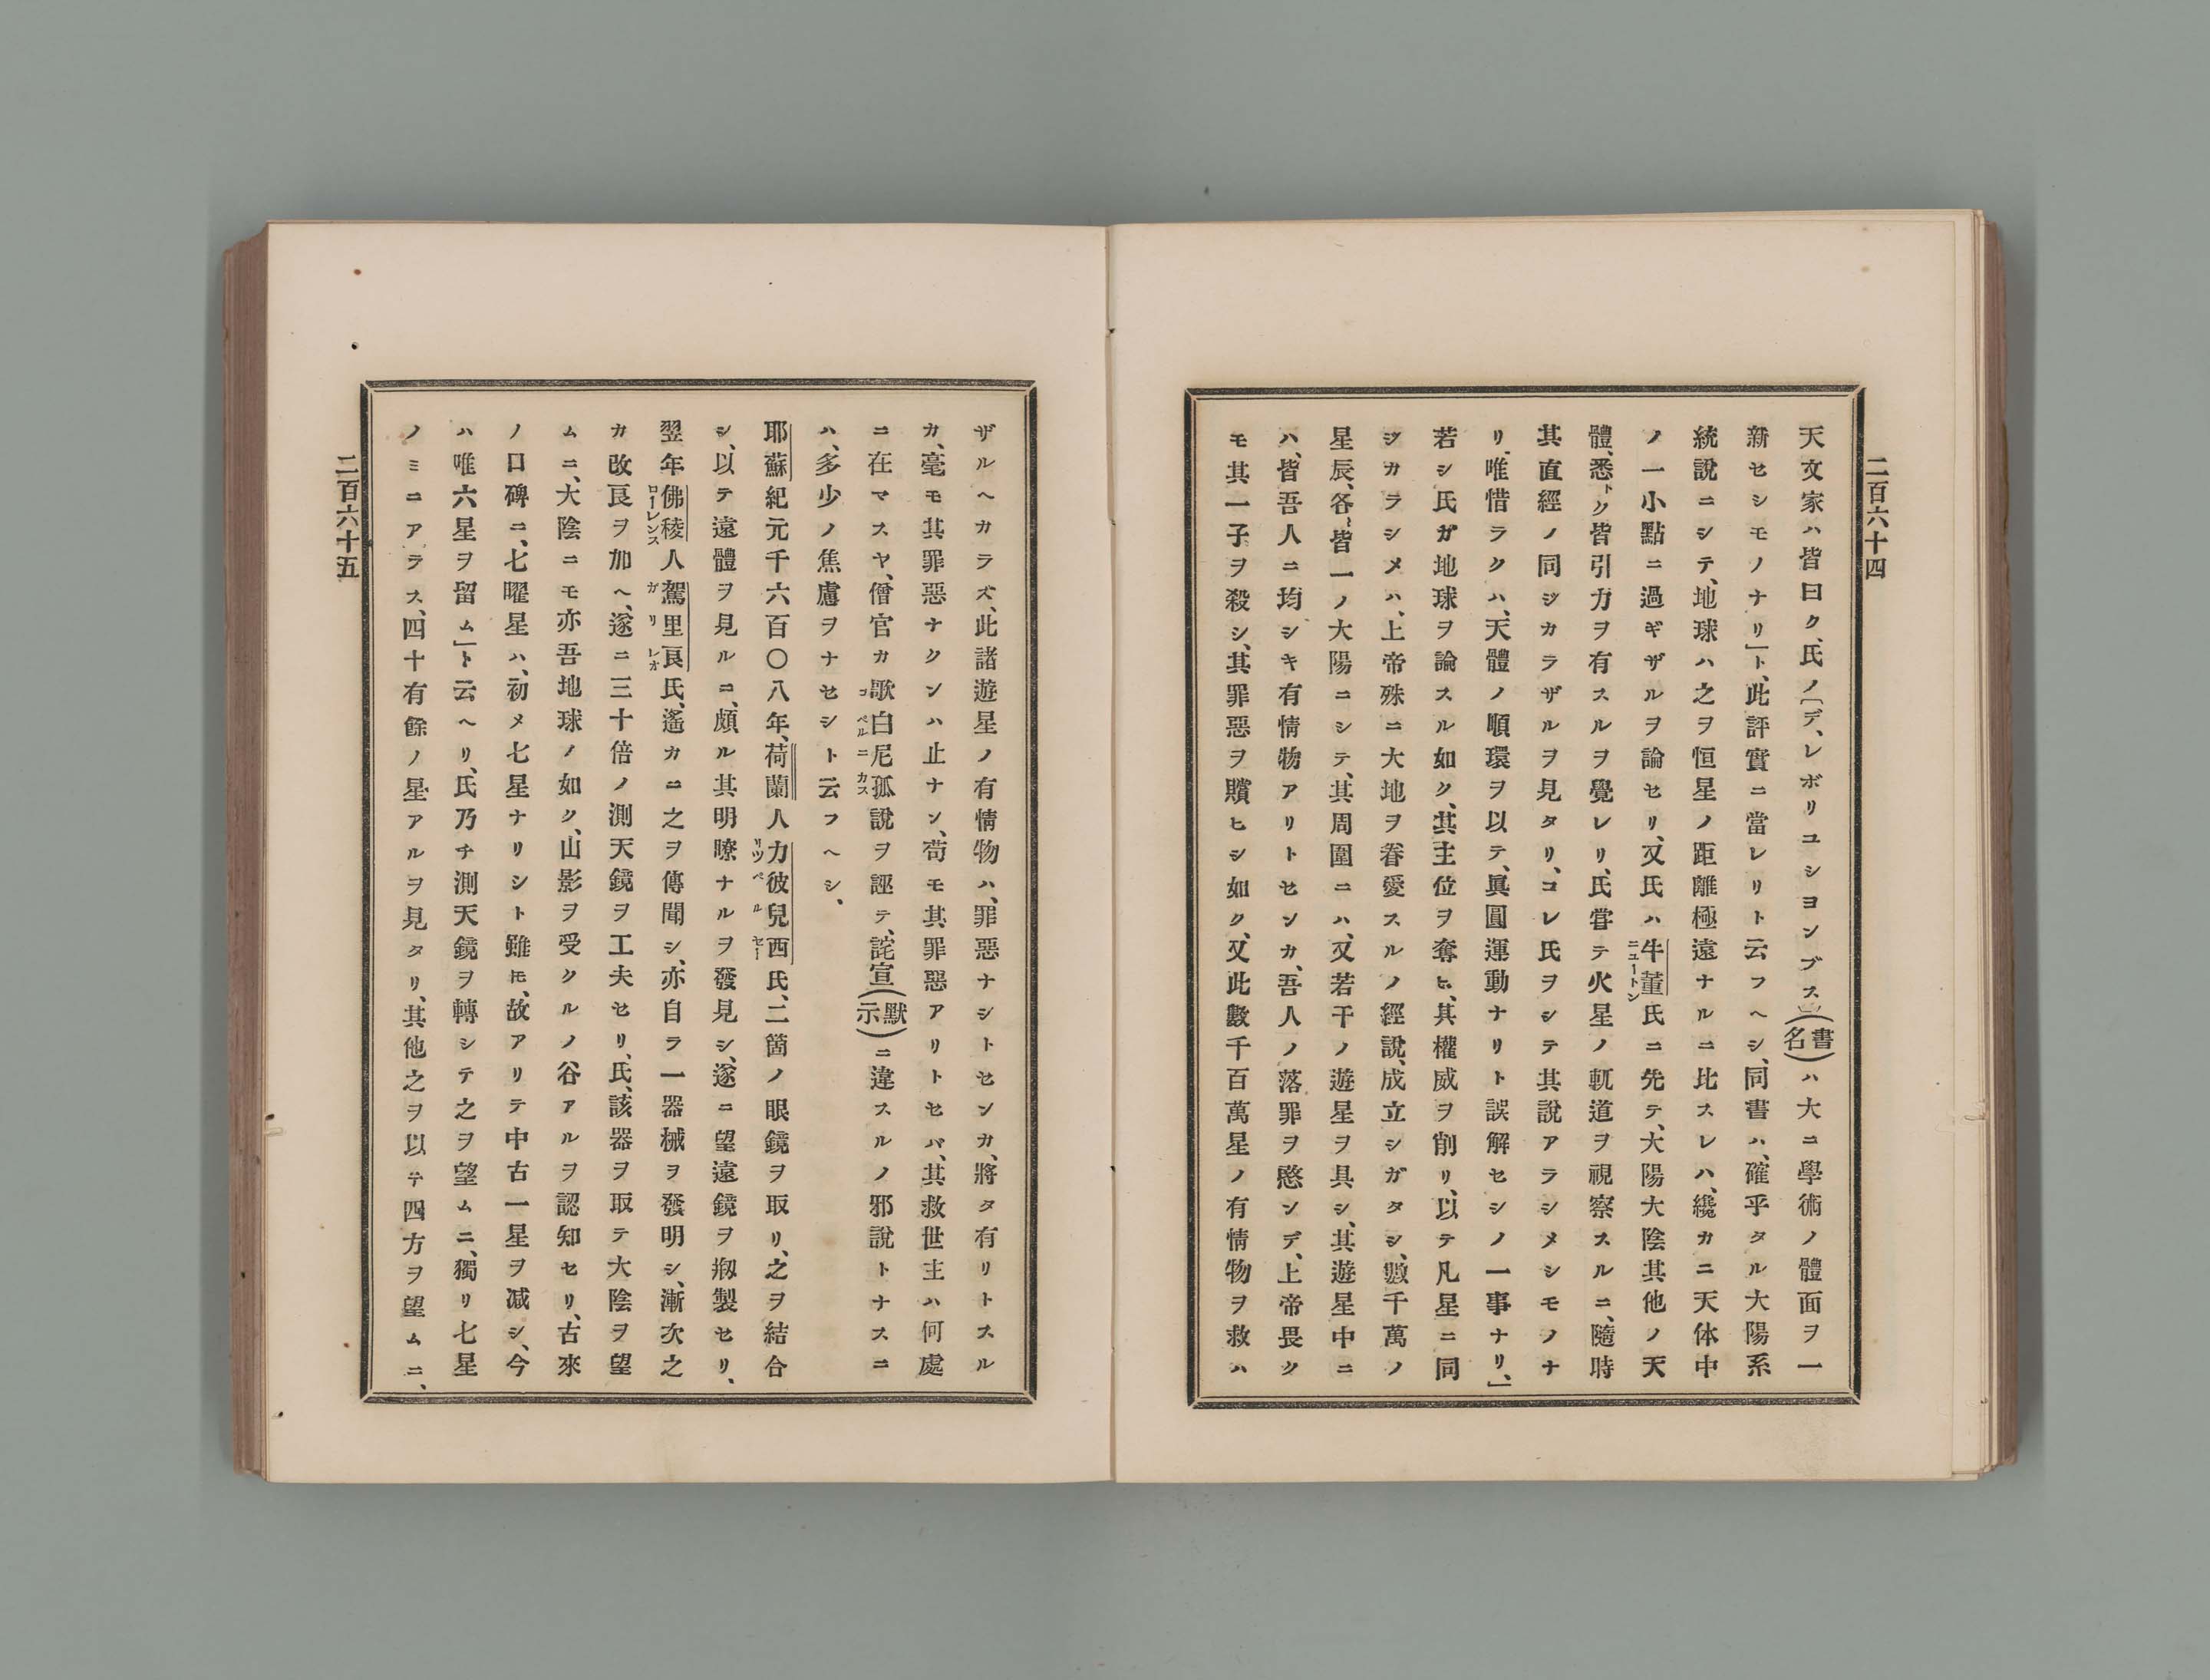 二百六十四
天文家ハ皆曰ク、氏ノ(デ、レボリユシヨンブス)(書名)ハ大ニ學術ノ體面ヲ一
新セシモノナリ」ト、此評實ニ當レリト云フヘシ、同書ハ、確乎タル大陽系
統說ニシテ、地球ハ之ヲ恒星ノ距離極遠ナルニ比スレハ、纔カニ天体中
ノ一小點ニ過ギザルヲ論セリ、又氏ハ牛董氏ニ先テ、大陽大陰其他ノ天
ニユートン
體、悉ク皆引力ヲ有スルヲ覺レリ、氏嘗テ火星ノ軌道ヲ視察スルニ、隨時
其直經ノ同ジカラザルヲ見タリ、コレ氏ヲシテ其說アラシメシモノナ
リ、唯惜ラクハ、天體ノ順環ヲ以テ、眞圓運動ナリト誤解セシノ一事ナリ、」
若シ氏ガ地球ヲ論スル如ク、其主位ヲ奪ヒ、其權威ヲ削リ、以テ凡星ニ同
ジカラシメハ、上帝殊ニ大地ヲ眷愛スルノ經說、成立シガタシ、數千萬ノ
星辰、各〻皆一ノ大陽ニシテ、其周圍ニハ、又若干ノ遊星ヲ具シ、其遊星中ニ
ハ、皆吾人ニ均シキ有情物アリトセンカ、吾人ノ落罪ヲ愍ンデ、上帝畏ク
モ其一子ヲ殺シ、其罪惡ヲ贖ヒシ如ク、又此數千百萬星ノ有情物ヲ救ハ
ザルヘカラズ、此諸遊星ノ有情物ハ、罪惡ナシトセンカ、將タ有リトスル
カ、毫モ其罪惡ナクンハ止ナン、苟モ其罪惡アリトセバ、其救世主ハ何處
ニ在マスヤ、僧官カ歌白尼孤說ヲ誣テ、詫宣(默示)ニ違スルノ邪說トナスニ
コペルニカス
ハ、多少ノ焦慮ヲナセシト云フヘシ、
耶蘇紀元千六百〇八年、荷蘭人力彼兒西氏、二箇ノ眼鏡ヲ取リ、之ヲ結合
リツペルセー
シ、以テ遠體ヲ見ルニ、頗ル其明瞭ナルヲ發見シ、遂ニ望遠鏡ヲ剏製セリ、
翌年佛稜人駕里良氏、遙カニ之ヲ傳聞シ、亦自ラ一器械ヲ發明シ、漸次之
ローレンス ガリレオ
カ改良ヲ加ヘ、遂ニ三十倍ノ測天鏡ヲ工夫セリ、氏、該器ヲ取テ大陰ヲ望
ムニ、大陰ニモ亦吾地球ノ如ク、山影ヲ受クルノ谷アルヲ認知セリ、古來
ノ口碑ニ、七曜星ハ、初メ七星ナリシト雖𪜈、故アリテ中古一星ヲ減シ、今
ハ唯六星ヲ留ム」ト云ヘリ、氏乃チ測天鏡ヲ轉シテ之ヲ望ムニ、獨リ七星
ノミニアラス、四十有餘ノ星アルヲ見タリ、其他之ヲ以テ四方ヲ望ムニ、
二百六十五